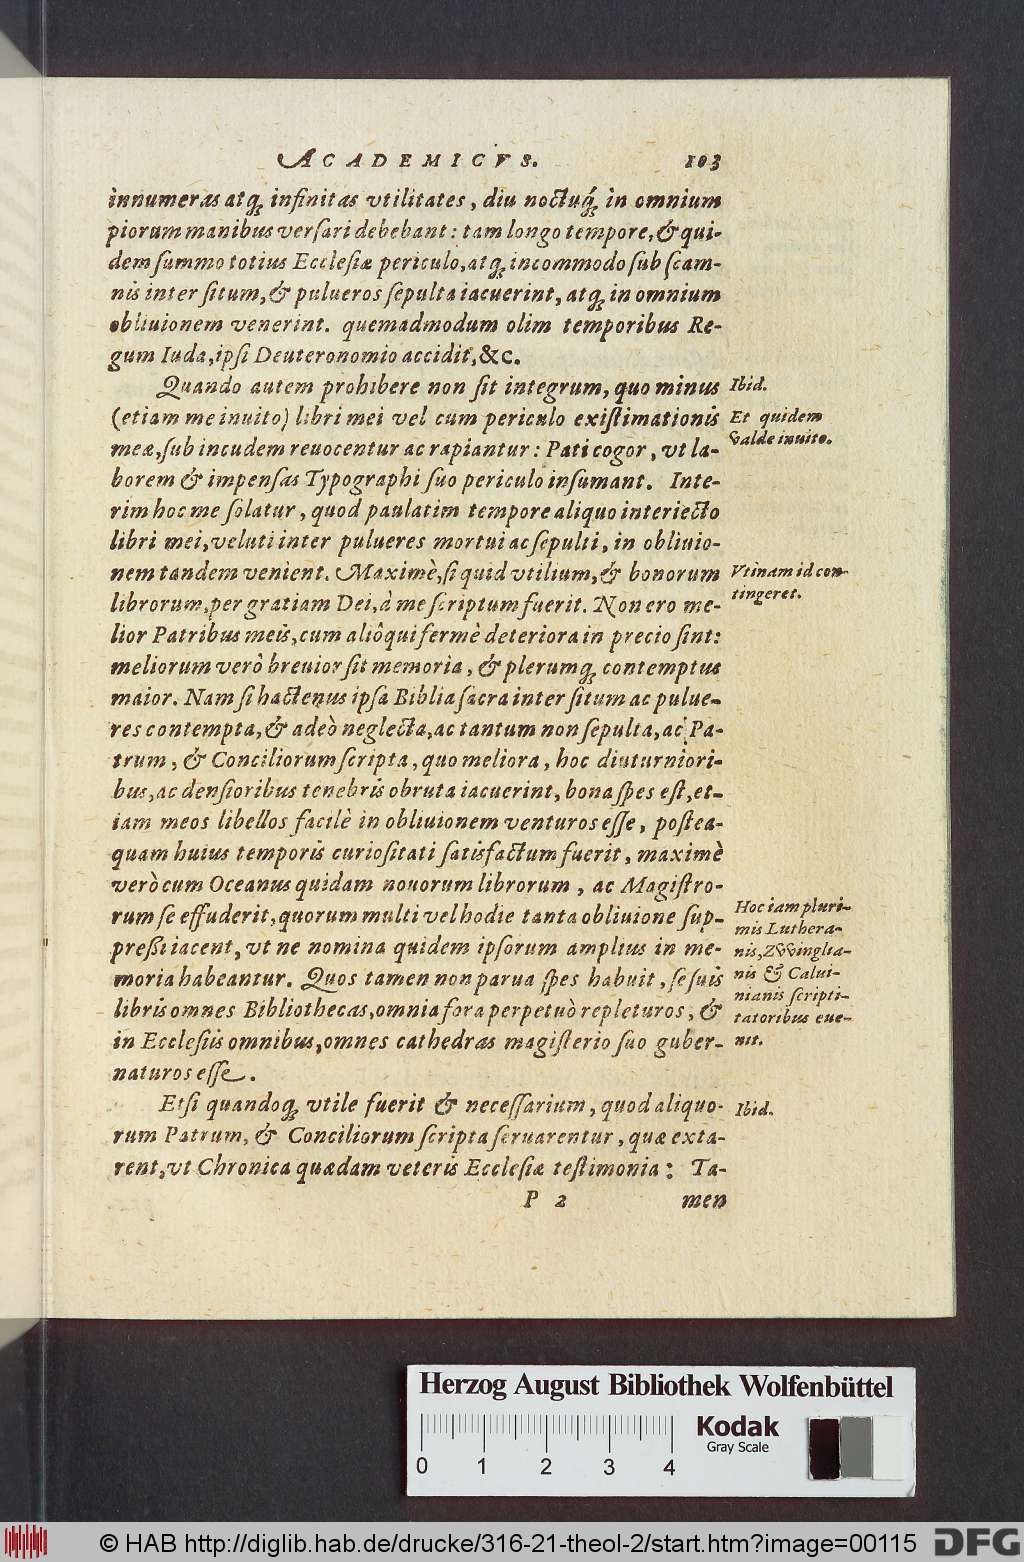 ACADEMICVS. 103
innumeras atq́; infinitas vtilitates, diu noctuq́; in omnium
piorum manibus versari debebant: tam longo tempore, & qui-
dem summo totius Ecclesiæ periculo, atq; incommodo sub scam-
nis inter situm, & pulueros sepulta iacuerint, atq; in omnium
obliuionem venerint. quemadmodum olim temporibus Re-
gum Iuda, ipsi Deuteronomio accidit, &c.
Quando autem prohibere non sit integrum, quo minus
Ibid.
(etiam me inuito) libri mei vel cum periculo existimationis
Et quidem
meæ, sub incudem reuocentur ac rapiantur: Pati cogor, vt la-
valde inuito.
borem & impensas Typographi suo periculo insumant. Inte-
rim hoc me solatur, quod paulatim tempore aliquo interiecto
libri mei, veluti inter pulueres mortui ac sepulti, in obliuio-
nem tandem venient. Maximè, si quid vtilium, & bonorum
Vtinam id con-
librorum, per gratiam Dei, à me scriptum fuerit. Non ero me-
tingeret.
lior Patribus meis, cum aliôqui fermè deteriora in precio sint:
meliorum verò breuior sit memoria, & plerumq; contemptus
maior. Nam si hactenus ipsa Biblia sacra inter situm ac pulue-
res contempta, & adeò neglecta, ac tantum non sepulta, ac Pa-
trum, & Conciliorum scripta, quo meliora, hoc diuturniori-
bus, ac densioribus tenebris obruta iacuerint, bona spes est, et-
iam meos libellos facilè in obliuionem venturos esse, postea-
quam huius temporis curiositati satisfactum fuerit, maximè
verò cum Oceanus quidam nouorum librorum, ac Magistro-
rum se effuderit, quorum multi vel hodie tanta obliuione sup-
Hoc iam pluri-
mis Luthera-
pressi iacent, vt ne nomina quidem ipsorum amplius in me-
nis, ZVVinglia-
moria habeantur. Quos tamen non parua spes habuit, se suis
nis & Calui-
nianis scripti-
libris omnes Bibliothecas, omnia fora perpetuò repleturos, &
tatoribus eue-
in Ecclesiis omnibus, omnes cathedras magisterio suo guber-
nit.
naturos esse.
Etsi quandoq; vtile fuerit & necessarium, quod aliquo-
Ibid.
rum Patrum, & Conciliorum scripta seruarentur, quæ exta-
rent, vt Chronica quædam veteris Ecclesiæ testimonia: Ta-
P 2 men
Herzog August Bibliothek Wolfenbüttel
Kodak
Gray Scale
0 1 2 3 4
© HAB http://diglib.hab.de/drucke/316-21-theol-2/start.htm?image=00115
DFG